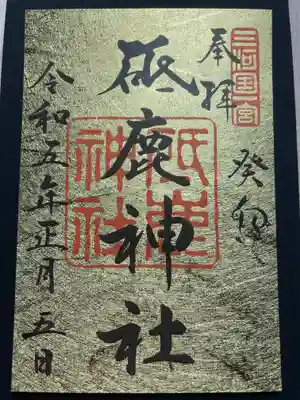 三河國一宮
奉拝
癸卯
砥鹿神社
砥鹿神社
令和五年正月五日